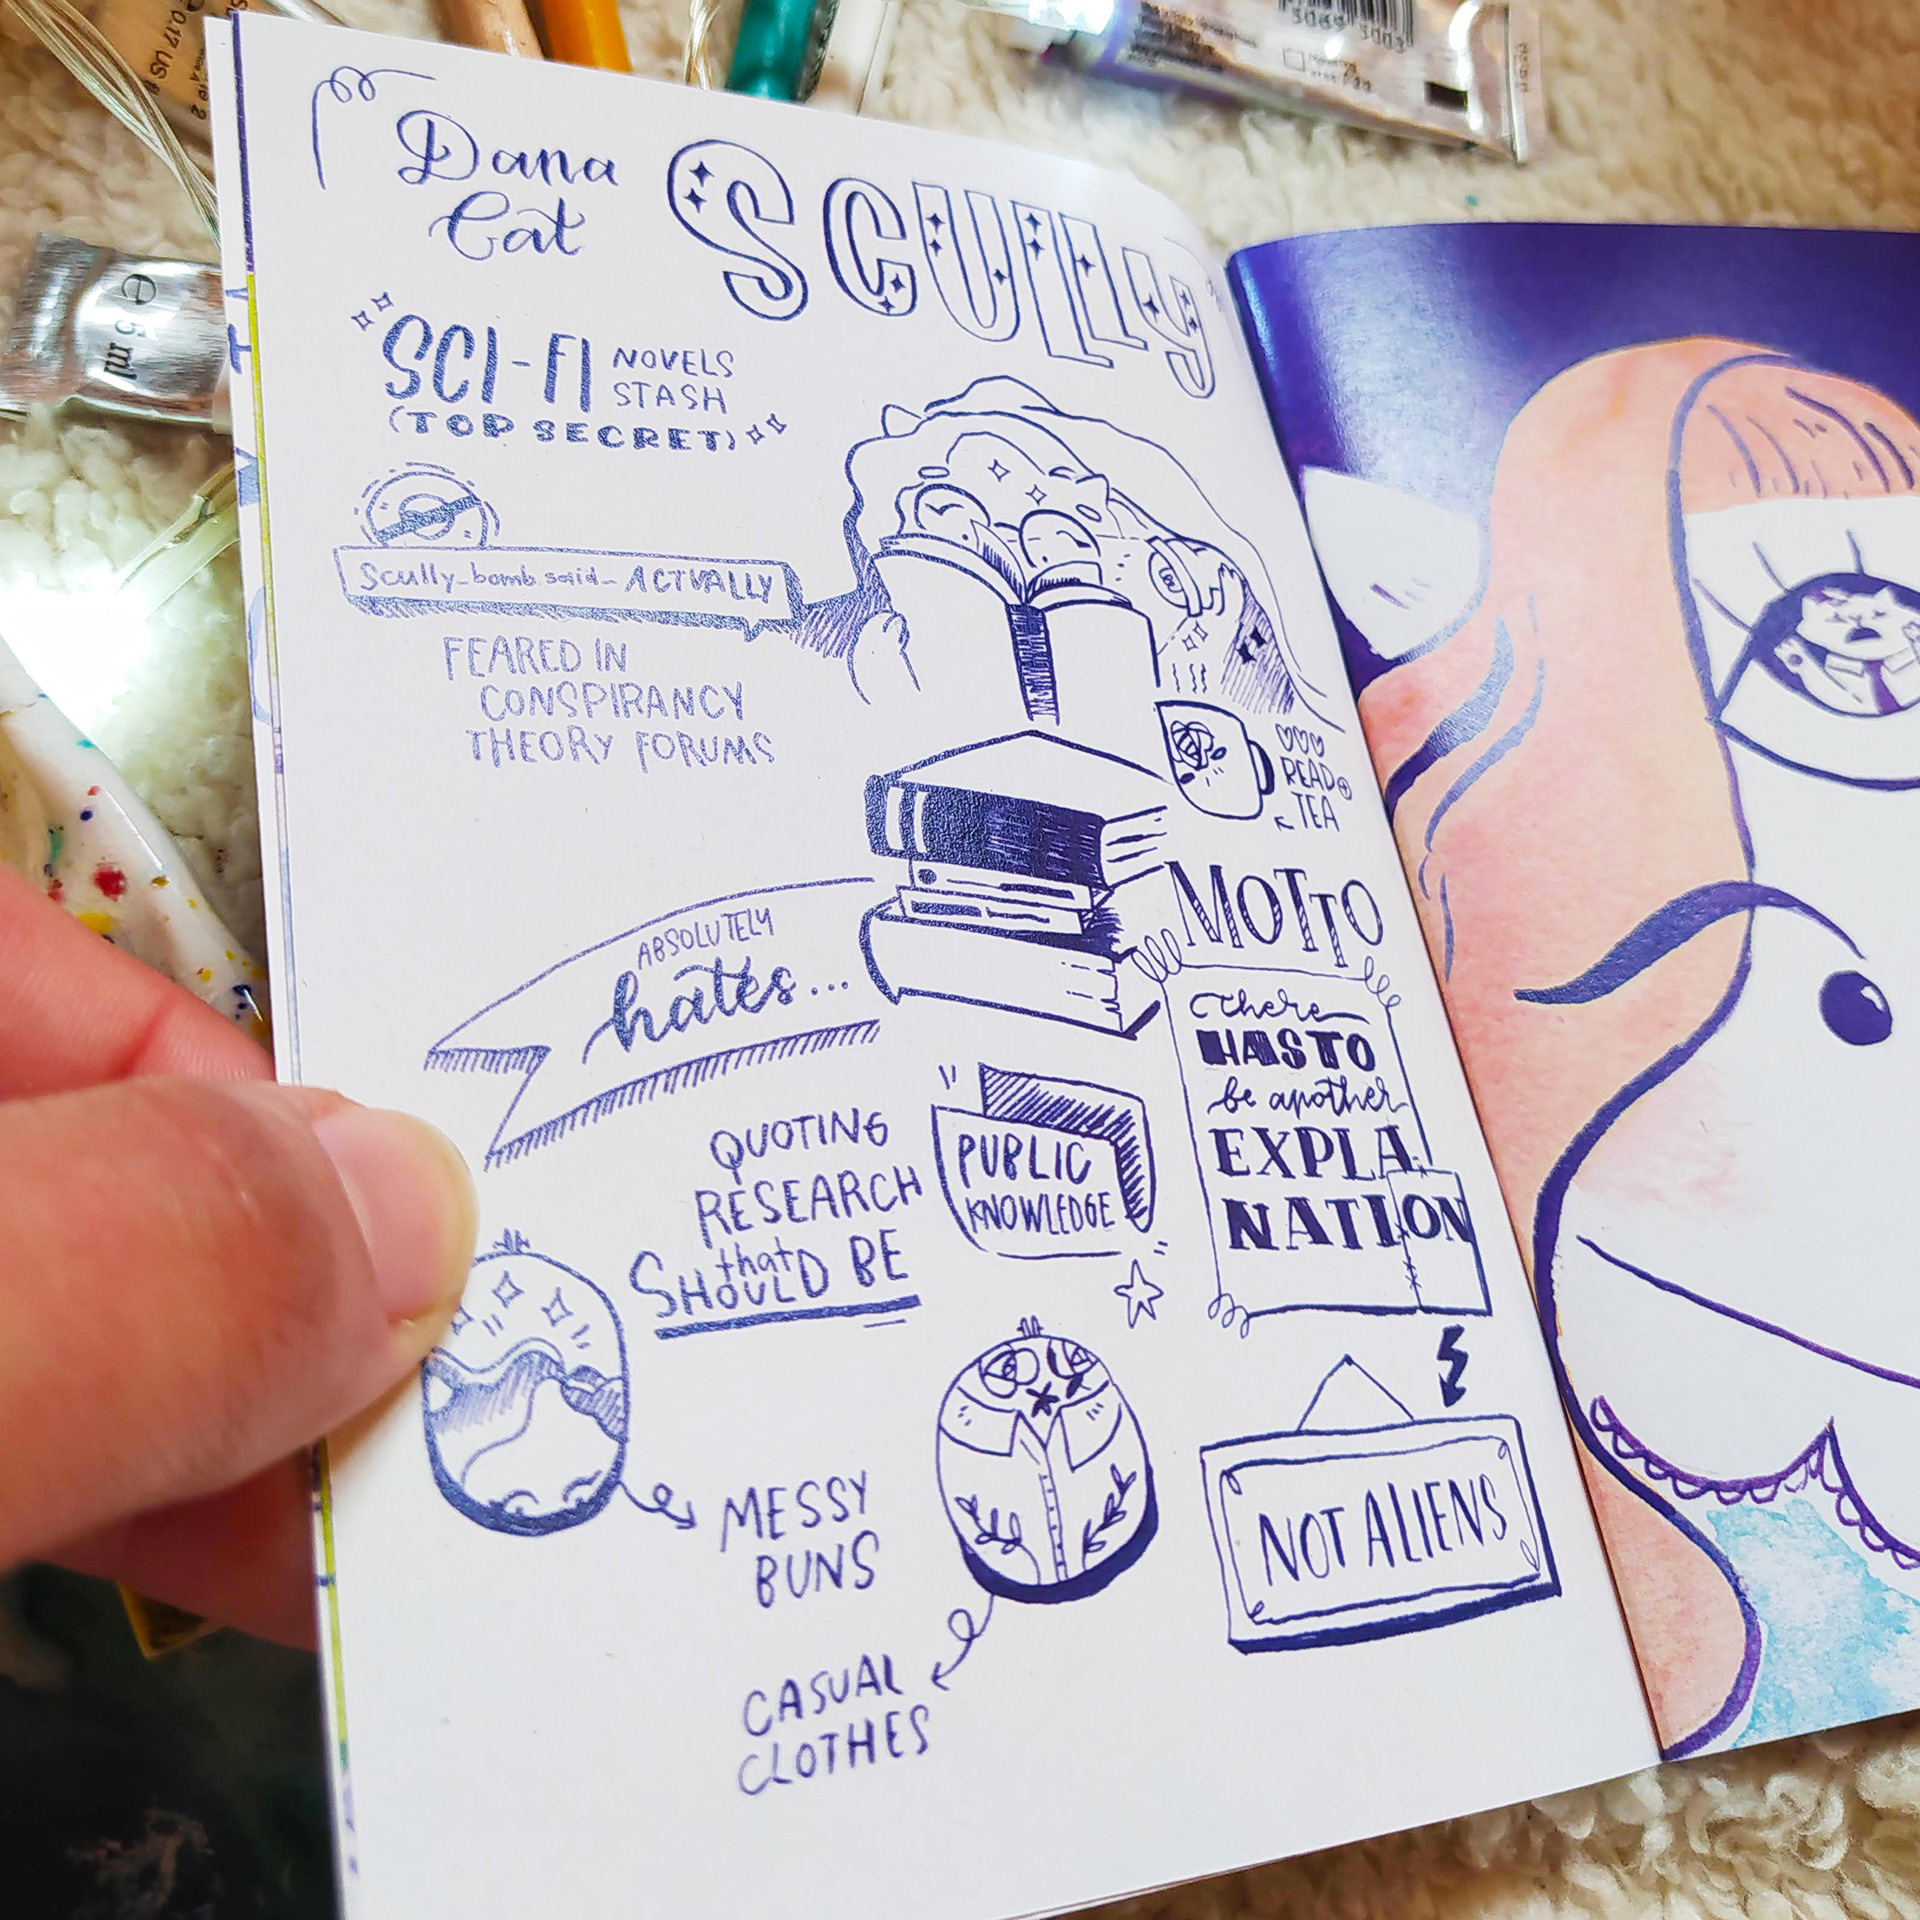 Dana
Cat
SCULLy
SCI-FI NOVELS
STASH
(TOP SECRET)
Scully_bomb said_ ACTUALLY
FEARED IN
CONSPIRANCY
THEORY FORUMS
READ
TEA
ABSOLUTELY
hates...
QUOTING
RESEARCH
that
SHOULD BE
PUBLIC
KNOWLEDGE
MOTTO
There
HAS TO
be another
EXPLA
NATION
NOT ALIENS
MESSY
BUNS
CASUAL
CLOTHES
e 5 ml
3069 3003